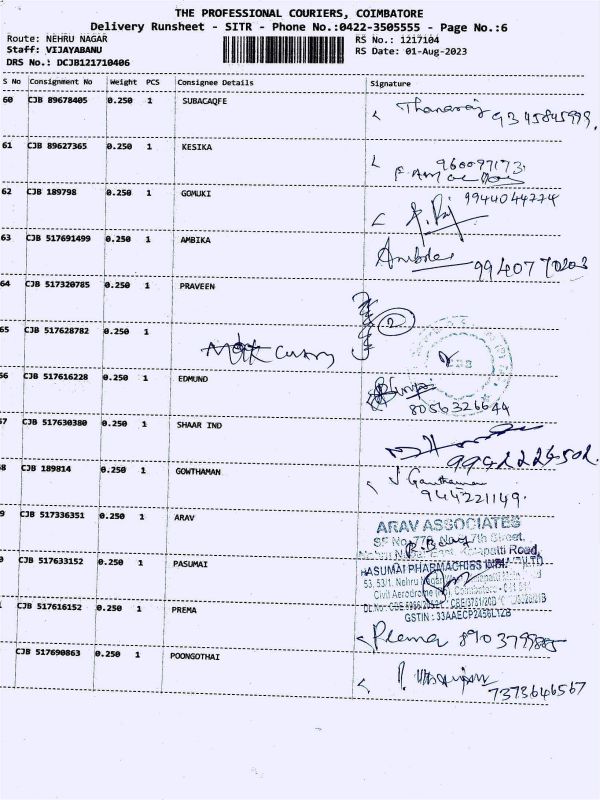 THE PROFESSIONAL COURIERS, COIMBATORE
Delivery Runsheet - SITR - Phone No.:0422-3505555 - Page No.:6
Route: NEHRU NAGAR RS No.: 1217104
Staff: VIJAYABANU RS Date: 01-Aug-2023
DRS No.: DCJB121710406
S No Consignment No Weight PCS Consignee Details Signature
60 CJB 89678405 0.250 1 SUBACAQFE Thanaraj 9345845999
61 CJB 89627365 0.250 1 KESIKA
62 CJB 189798 0.250 1 GOMUKI 9944044774
63 CJB 517691499 0.250 1 AMBIKA
64 CJB 517320785 0.250 1 PRAVEEN
65 CJB 517628782 0.250 1 2
66 CJB 517616228 0.250 1 EDMUND 8056326644
67 CJB 517630380 0.250 1 SHAAR IND
68 CJB 189814 0.250 1 GOWTHAMAN J Gauthaman
944221149.
9 CJB 517336351 0.250 1 ARAV ARAV ASSOCIATES
7th Street,
Road,
CJB 517633152 0.250 1 PASUMAI HASUMAI PHARMACIES
53, 53/1, Nehru Nagar
Civil Aerodrome
GSTIN : 33AAECP2458L1ZB
CJB 517616152 0.250 1 PREMA Prema
CJB 517690863 0.250 1 POONGOTHAI 7373646567